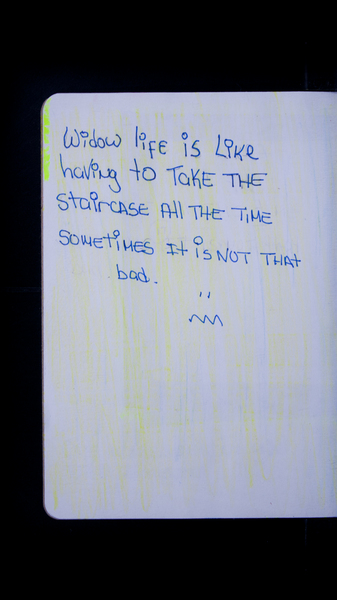 Widow life is Like
having to TAKE THE
STairCASE All THE TiME
SOMETiMES It is NOT THAT
bad.